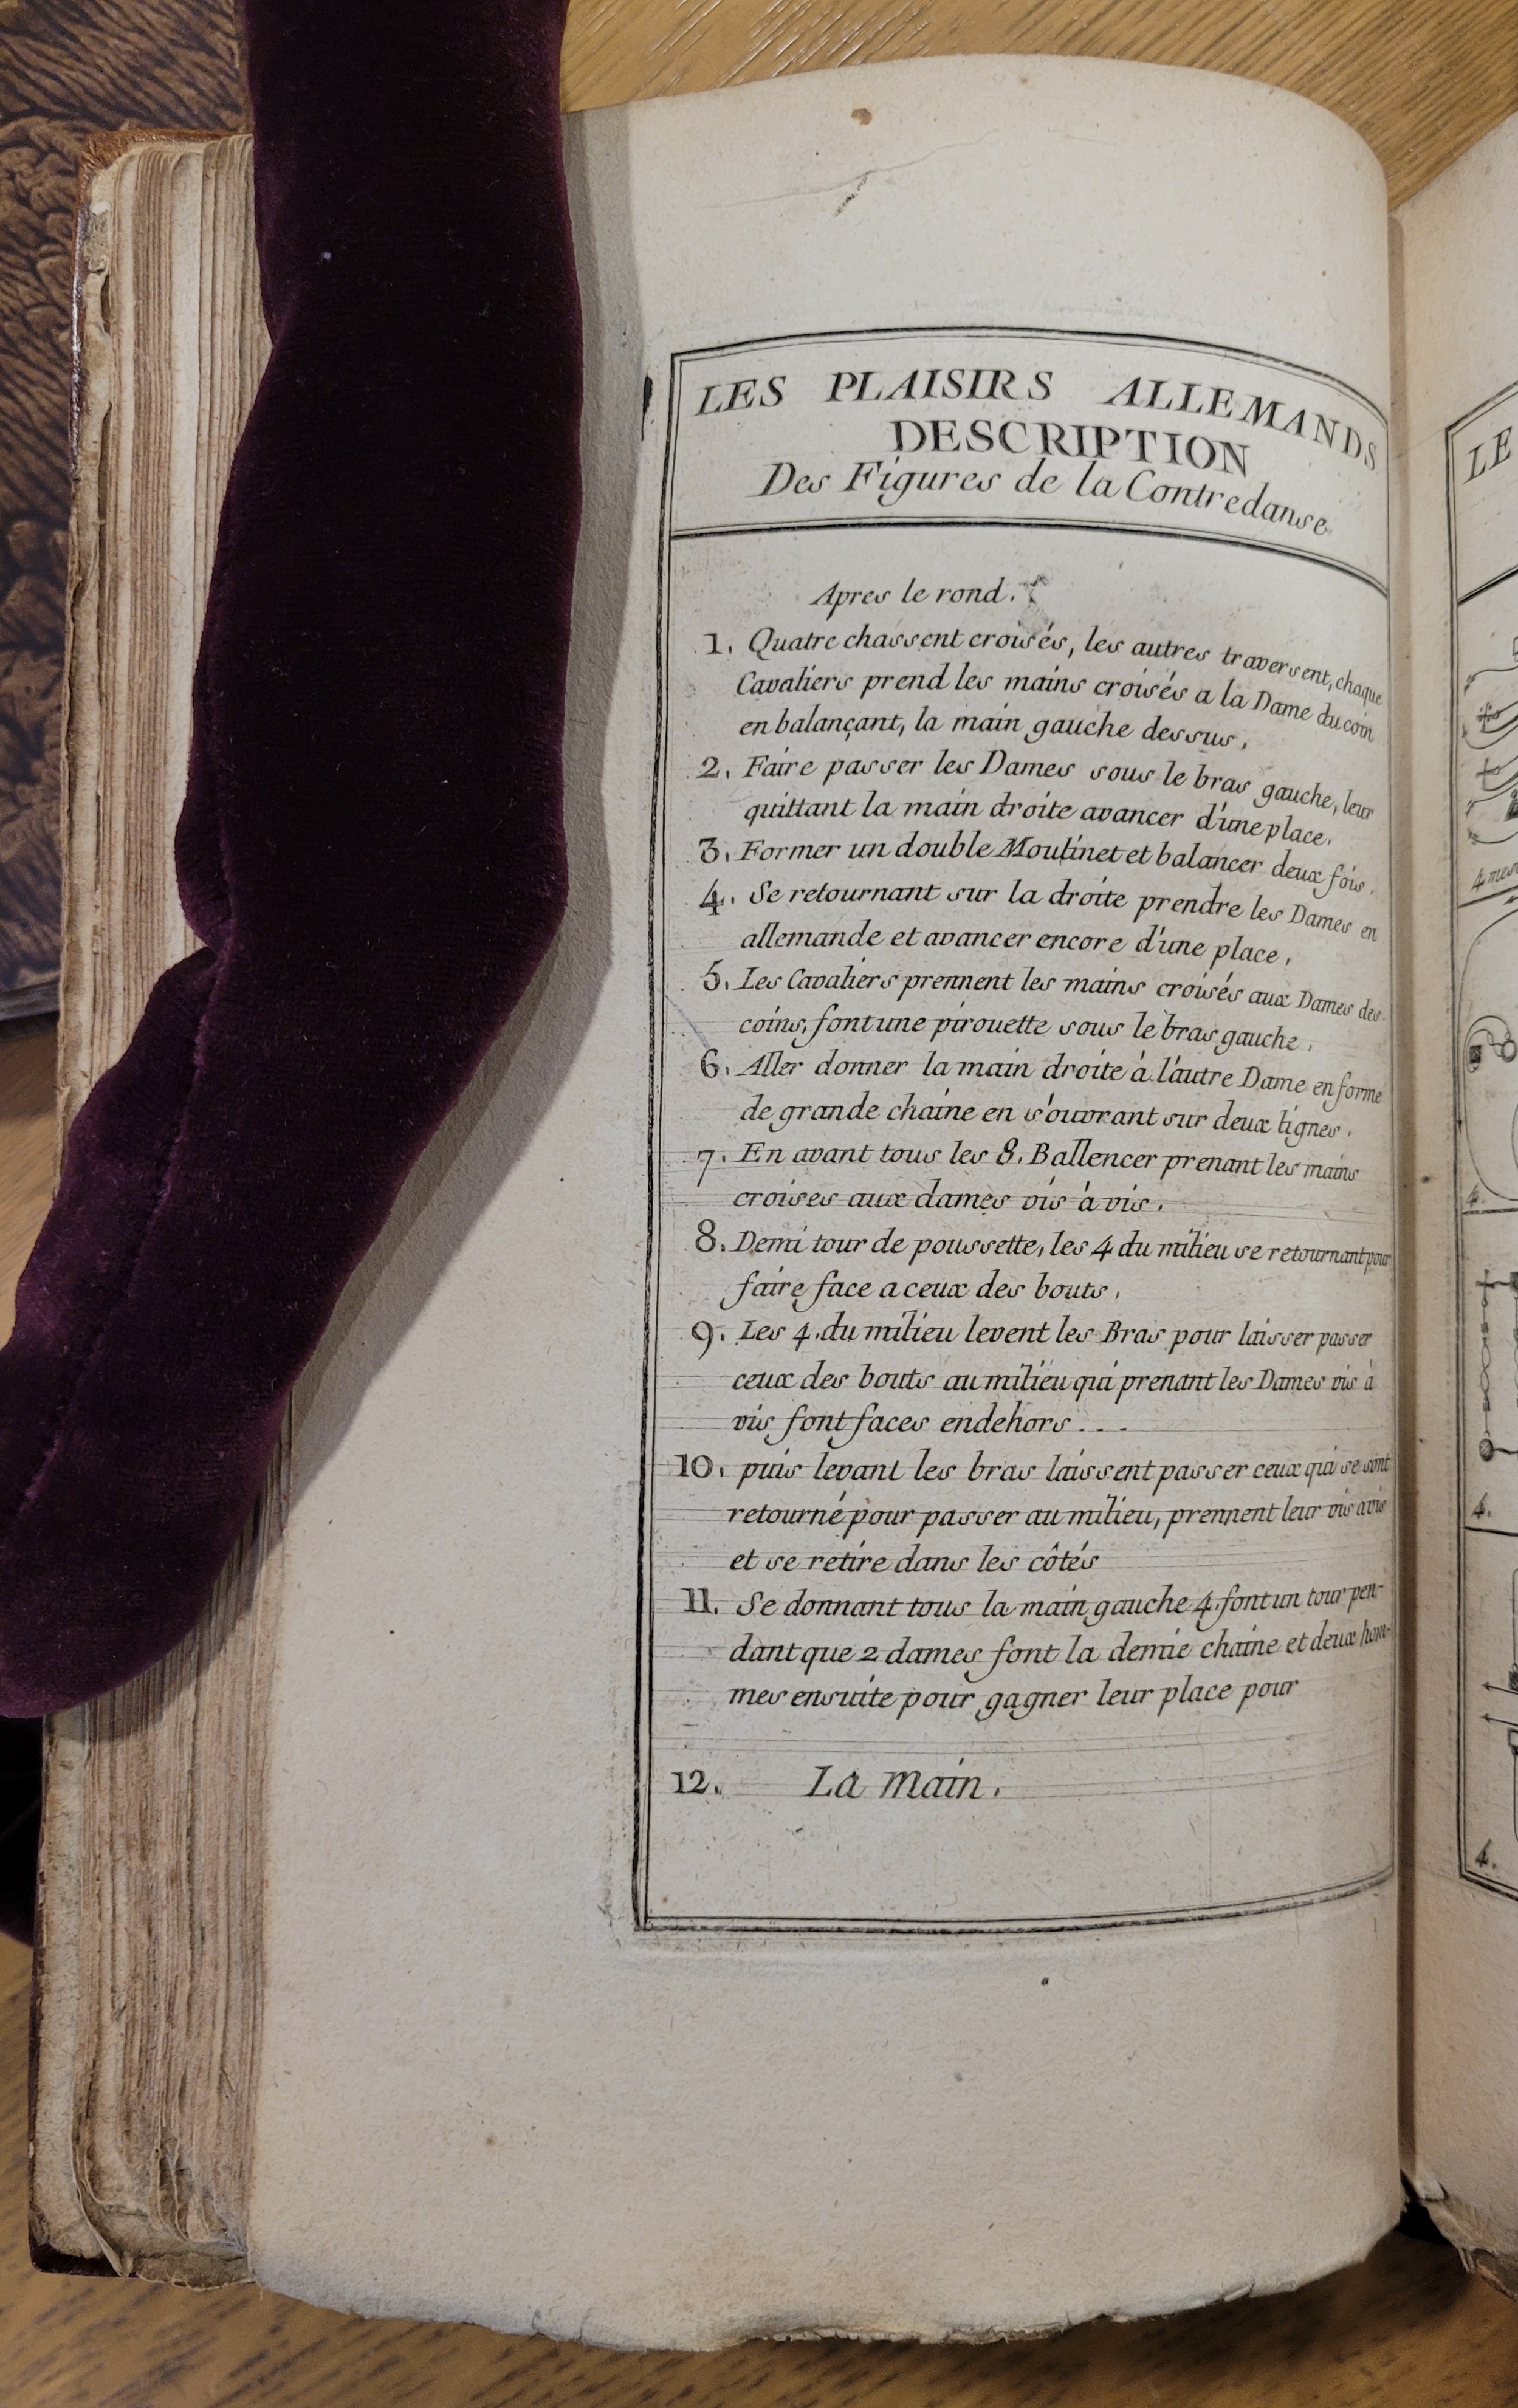 LES PLAISIRS ALLEMANDS
DESCRIPTION
Des Figures de la Contredanse
Apres le rond.
1. Quatre chassent croisés, les autres traversent, chaque
Cavaliers prend les mains croisés a la Dame du coin
en balançant, la main gauche dessus.
2. Faire passer les Dames sous le bras gauche, leur
quittant la main droite avancer d'une place.
3. Former un double Moulinet et balancer deux fois.
4. Se retournant sur la droite prendre les Dames en
allemande et avancer encore d'une place.
5. Les Cavaliers prennent les mains croisés aux Dames des
coins, font une pirouette sous le bras gauche.
6. Aller donner la main droite à l'autre Dame en forme
de grande chaine en s'ouvrant sur deux lignes.
7. En avant tous les 8. Ballencer prenant les mains
croises aux dames vis à vis.
8. Demi tour de poussette, les 4 du milieu se retournant pour
faire face a ceux des bouts.
9. Les 4. du milieu levent les Bras pour laisser passer
ceux des bouts au milieu qui prenant les Dames vis à
vis font faces endehors...
10. puis levant les bras laissent passer ceux qui se sont
retourné pour passer au milieu, prennent leur vis avis
et se retire dans les côtés
11. Se donnant tous la main gauche 4. font un tour pen-
dant que 2 dames font la demie chaine et deux hom-
mes ensuite pour gagner leur place pour
12. La main.
LE
4 mes
4.
4.
4.